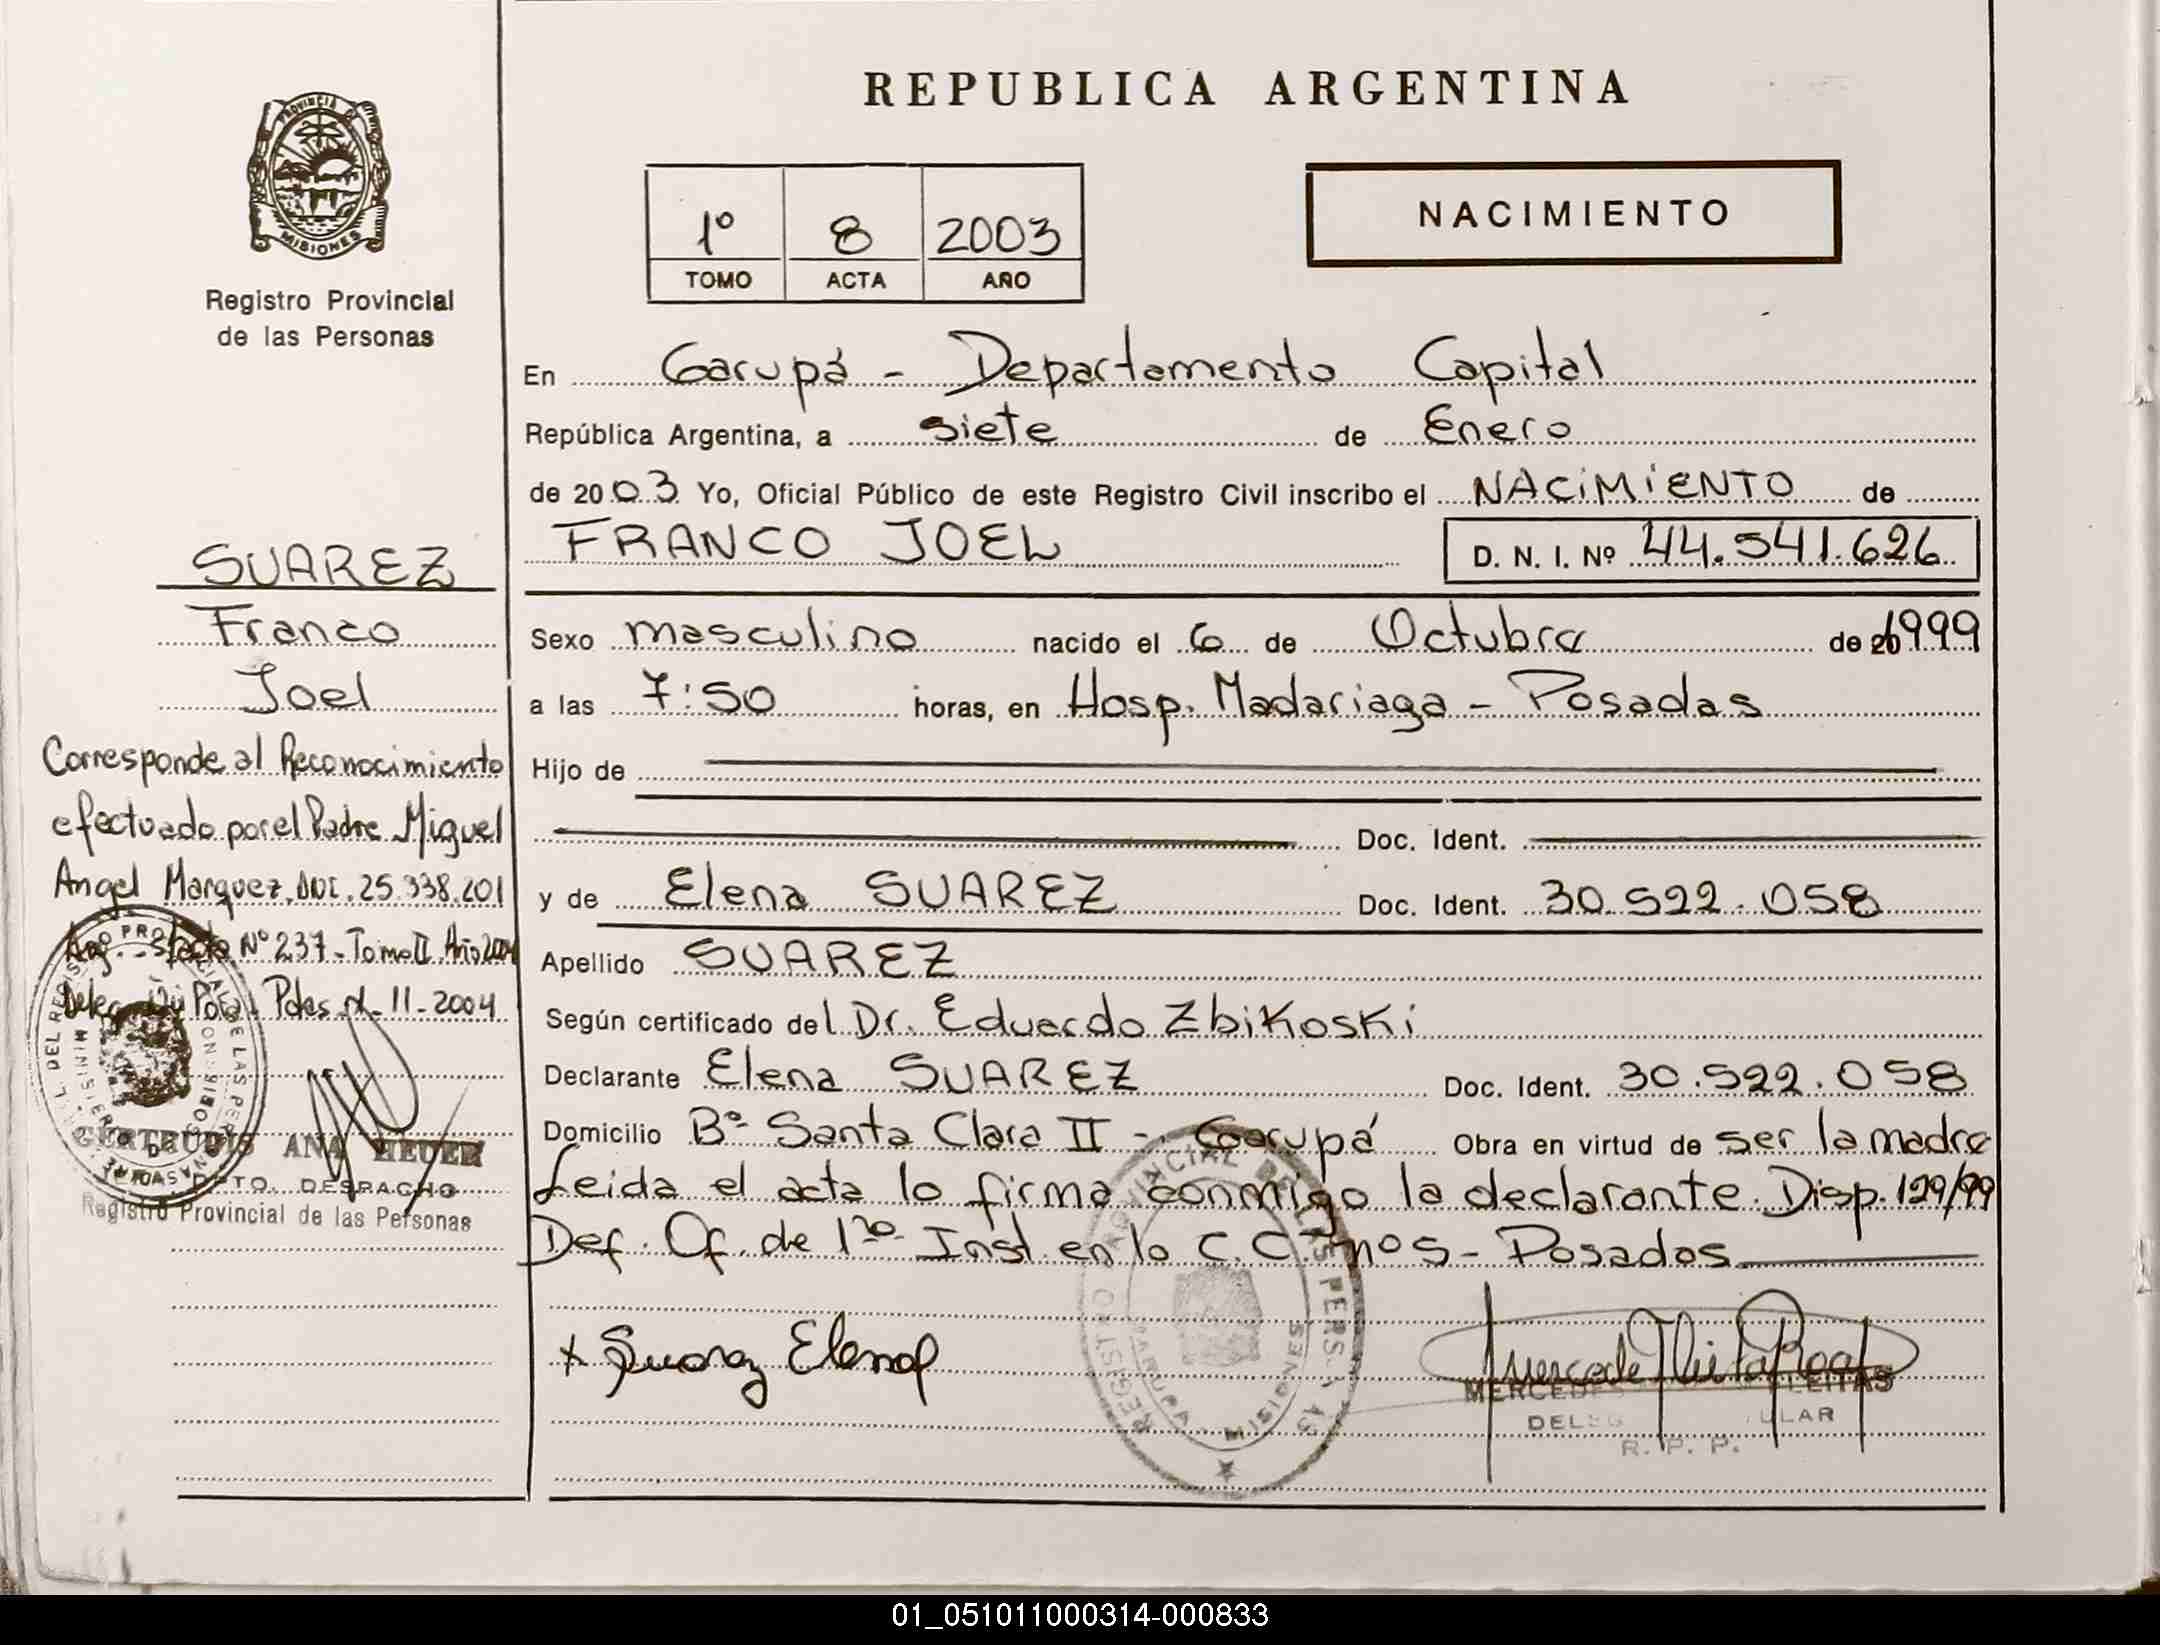 REPUBLICA ARGENTINA
PROVINCIA DE
MISIONES
Registro Provincial
de las Personas
1º 8 2003
TOMO ACTA AÑO
NACIMIENTO
En Garupá - Departamento Capital
República Argentina, a siete de Enero
de 2003 Yo, Oficial Público de este Registro Civil inscribo el NACIMIENTO de
FRANCO JOEL D. N. I. Nº 44.541.626
Sexo masculino nacido el 6 de Octubre de 1999
a las 7:50 horas, en Hosp. Madariaga - Posadas
Hijo de
Doc. Ident.
y de Elena SUAREZ Doc. Ident. 30.522.058
Apellido SUAREZ
Según certificado del Dr. Eduardo Zbikoski
Declarante Elena SUAREZ Doc. Ident. 30.522.058
Domicilio Bº Santa Clara II - Garupá Obra en virtud de ser la madre
Leida el acta lo firma conmigo la declarante. Disp. 129/99
Def. Of. de 1ra Inst. en lo C.C. nº 5 - Posadas
x Suarez Elena
MERCEDES LEITAS
R. P. P.
SUAREZ
Franco
Joel
Corresponde al Reconocimiento
efectuado por el Padre Miguel
Angel Marquez, DNI. 25.338.201
Arg. - s/acta Nº 237 - Tomo II Año 2004
Deleg. Pdas. 11-2004
GERTRUDIS ANA HEUER
DPTO. DESPACHO
Registro Provincial de las Personas
REGISTRO PROVINCIAL DE LAS PERS.
GARUPA
MISIONES
01_051011000314-000833